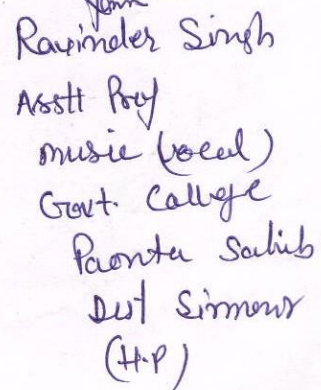 Ravinder Singh
Asstt Prof
music (vocal)
Govt. College
Paonta Sahib
Dist Sirmour
(H.P)